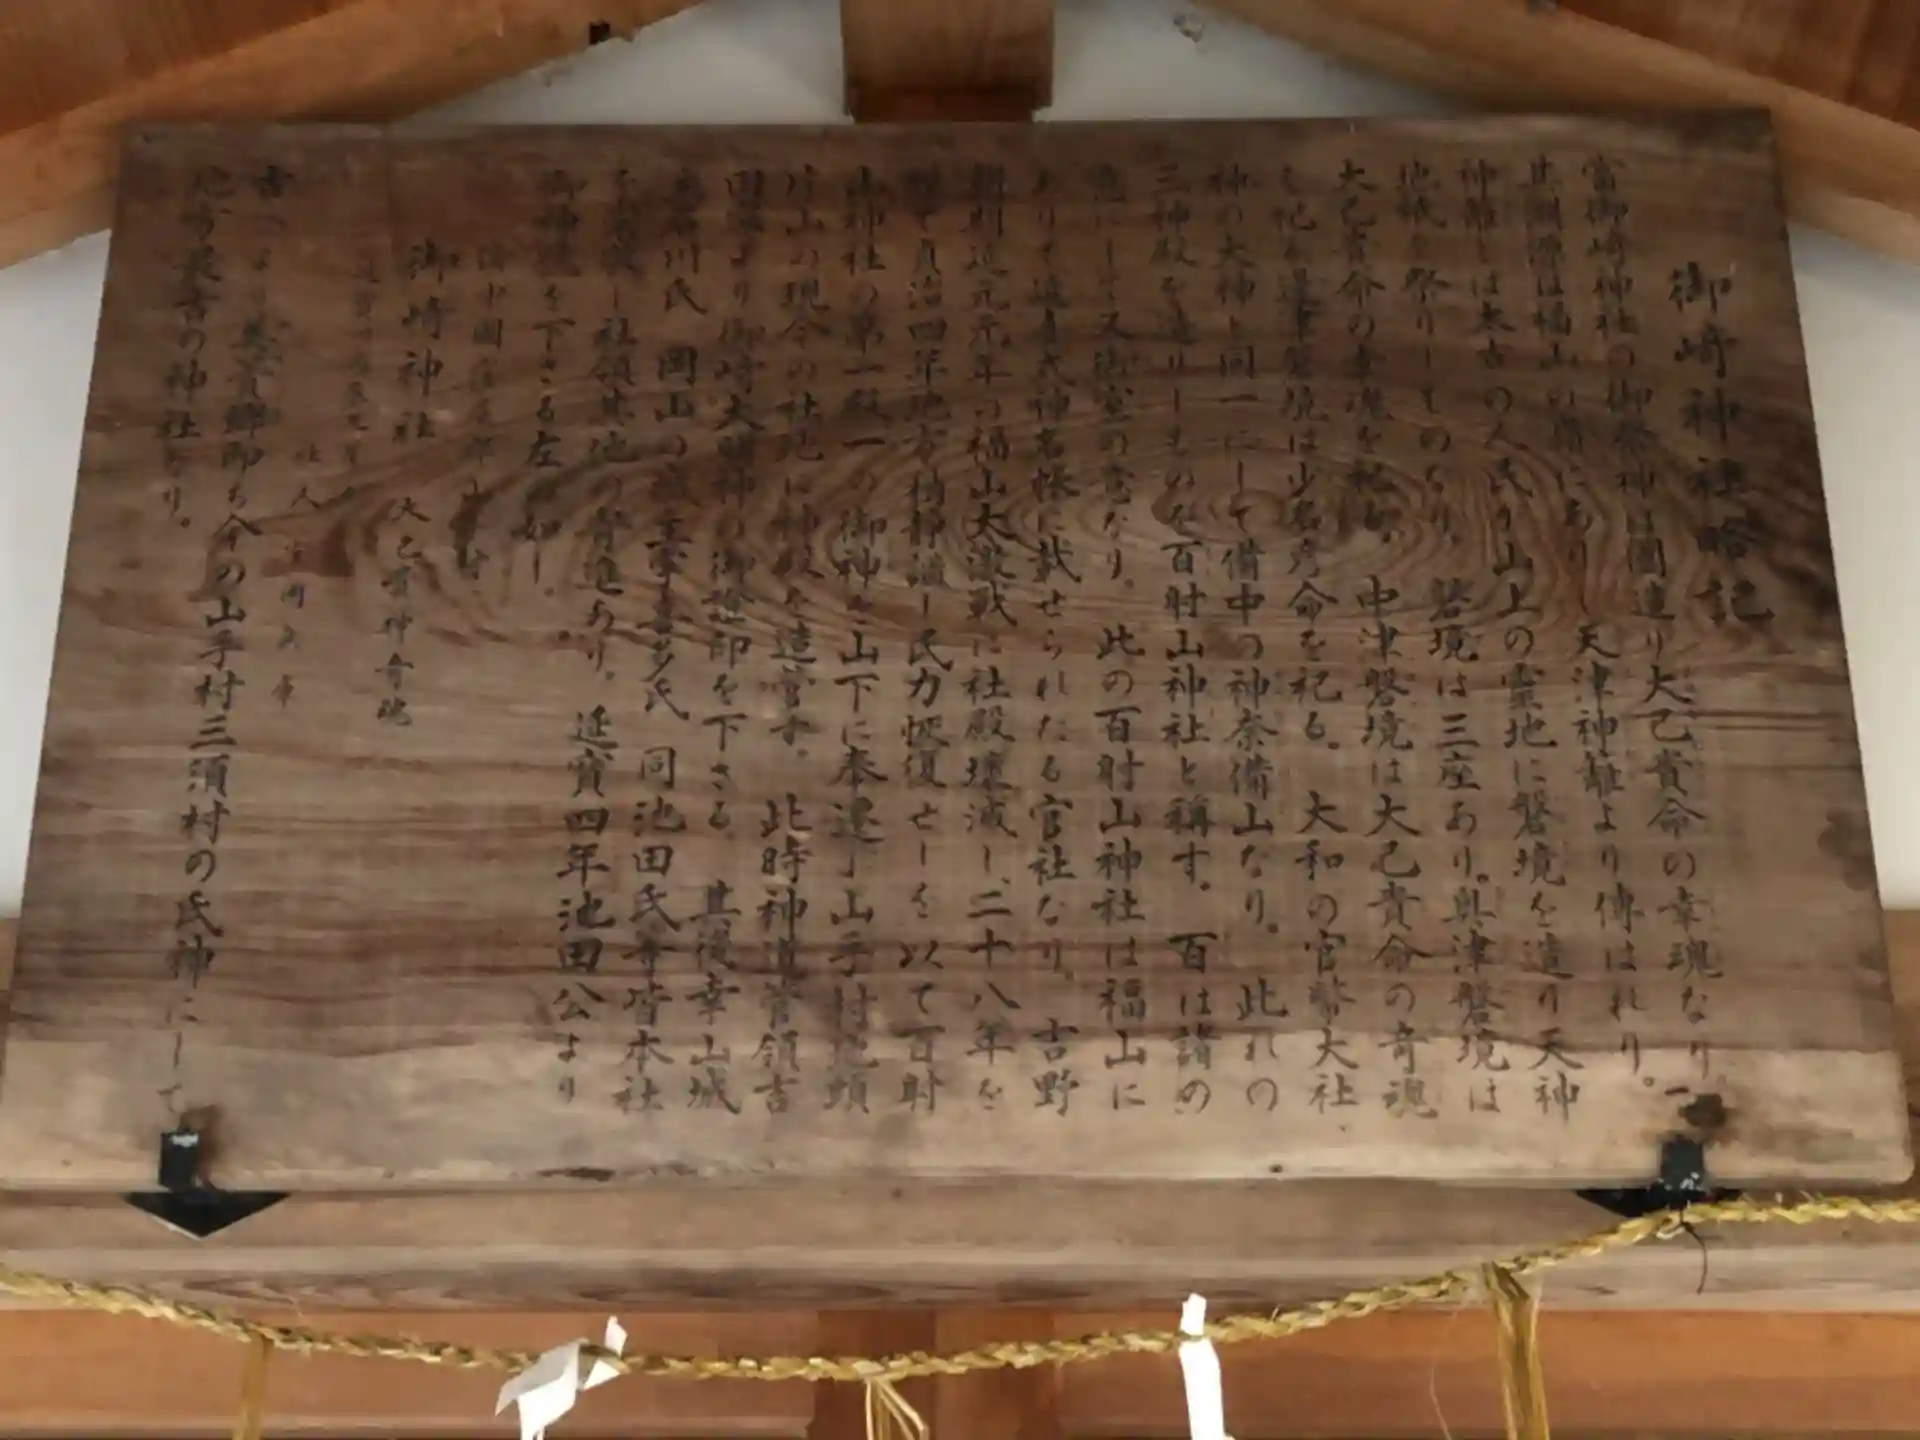 御崎神社略記
當御崎神社の御祭神は國造り大己貴命の幸魂なり
其淵源は福山の嶺にありし天津神籬より傳はれり。
神籬とは太古の人民が山上の霊地に磐境を造り天神
地祇を祭りしものなり。磐境は三座あり。奥津磐境は
大己貴命の幸魂を祀る。中津磐境は大己貴命の奇魂
を祀る邊津磐境は少名彦命を祀る。大和の官幣大社、
神の大神と同一にして備中の神奈備山なり。此れの
三神殿を造りしものを百射山神社と稱す。百は諸の
意にして又御室の意なり。此の百射山神社は福山に
ありて延喜式神名帳に載せられたる官社なり。吉野
朝則延元元年の福山大激戦に社殿壊滅し、二十八年を
經て貞治四年地方稍静謐し民力恢復せしを以て百射
山神社の第一殿一の御神を山下に奉遷し山手村地頭
片山の現今の社地に神殿を造営す。此時神道管領吉
田家より御崎大明神の御證印を下さる 其後幸山城
主石川氏 岡山の城主宇喜多氏 同池田氏等皆本社
を崇敬し社領其他の寄進あり。延寶四年池田公より
御神號を下さる左の如し。
御崎神社 大己貴神奇魂
社人
古へより 郷即ち今の山手村三須村の氏神にして
地方最古の神社なり。